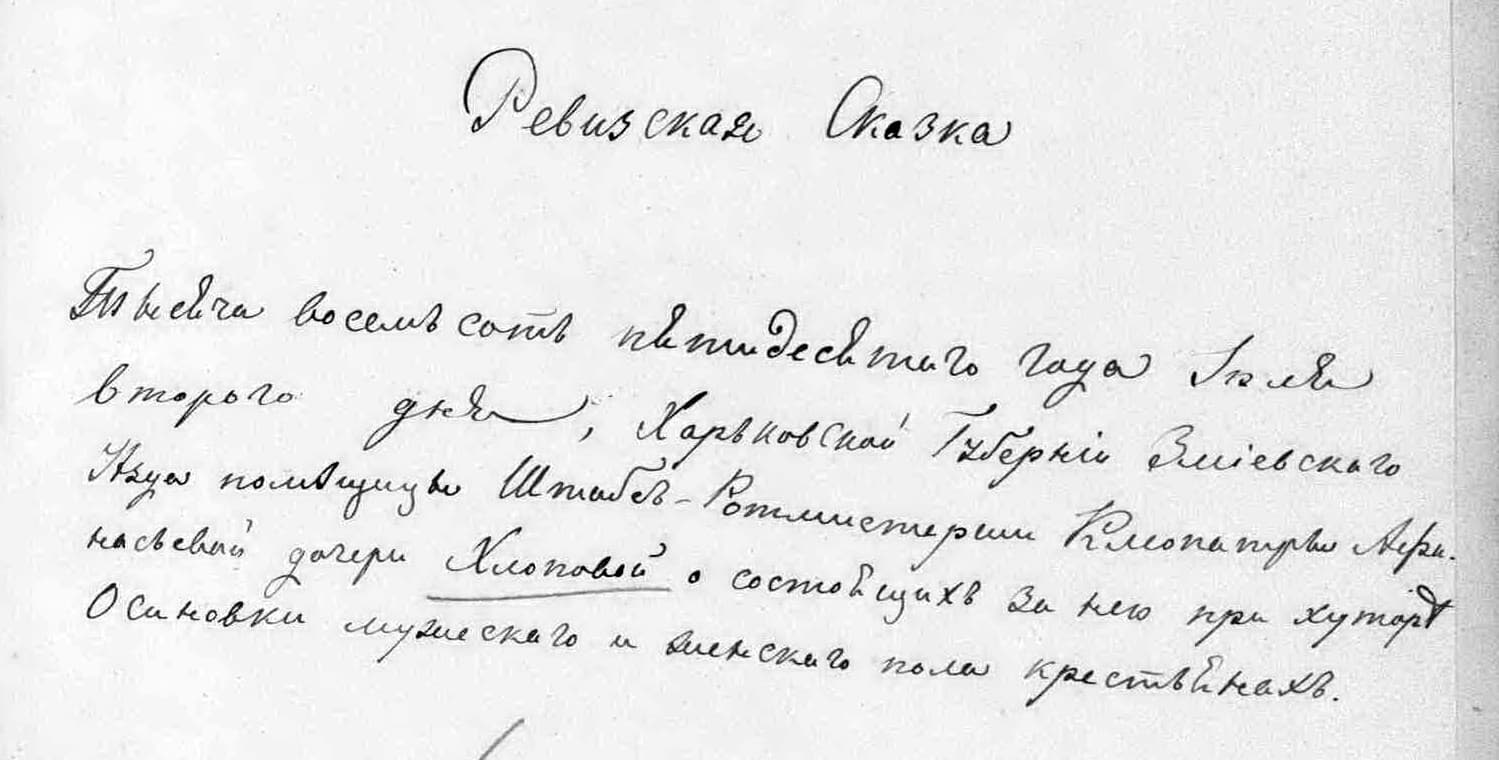 Ревизская Сказка
Тысяча восемьсотъ пятидесятаго года Iюля
втораго дня, Харьковской Губернiи Змiевскаго
Уѣзда помѣщицы Штабсъ-Ротмистерши Клеопатры Афа-
насьевой дочери Хлоповой о состоящихъ за нею при хуторѣ
Осиновки мужескаго и женскаго пола крестьянахъ.